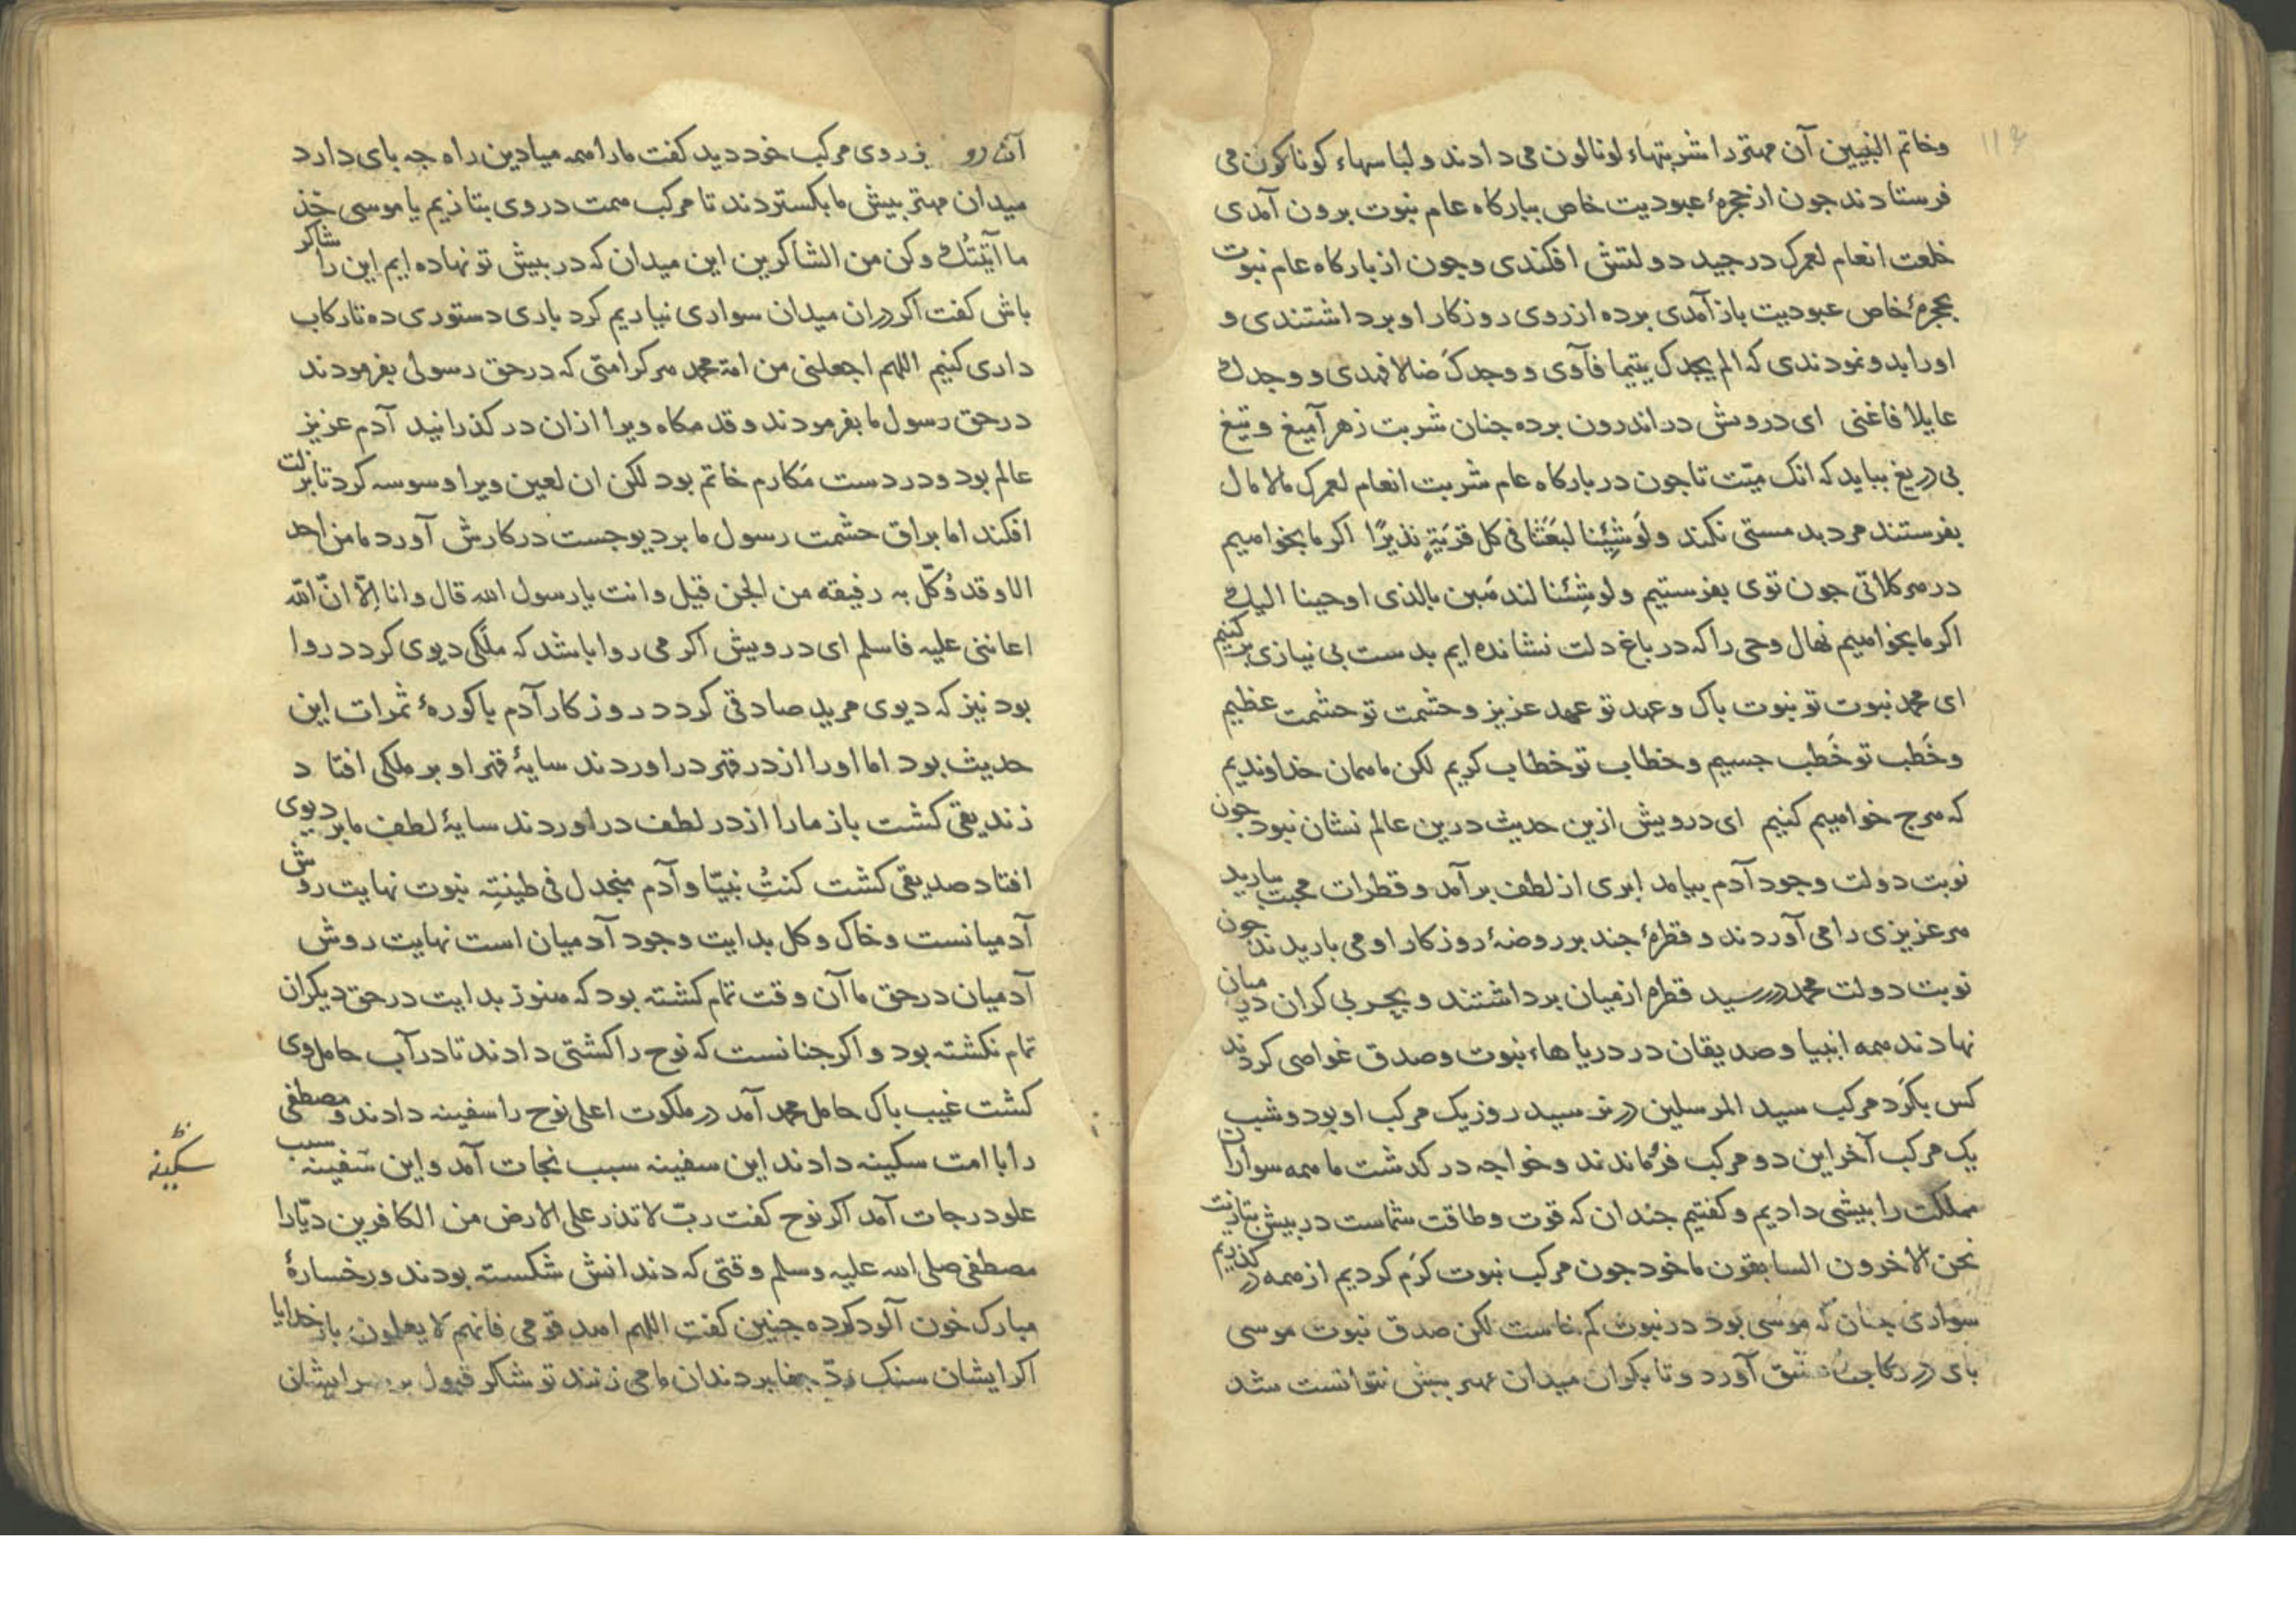 وخاتم النبیین آن مهتر را شربتهاء لونالون می دادند و لباسهاء کوناکون می
فرستادند جون از حجرهٔ عبودیت خاص ببارکاه عام نبوت برون آمدی
خلعت انعام لعمرک در جید دولتش افکندی و جون از بارکاه عام نبوت
بحجرهٔ خاص عبودیت باز آمدی برده از روی روزکار او برداشتندی و
اورا بدو نمودندی که الم یجدک یتیما فآوی و وجدک ضالا فهدی و وجدک
عایلا فاغنی ای درویش در اندرون برده جنان شربت زهر آمیغ و تیغ
بی دریغ بباید که انک میّت تا جون در بارکاه عام شربت انعام لعمرک مالامال
بفرستند مرد بد مستی نکند ولَوشِئنا لبَعَثنا فی کل قریَةٍ نذیرًا اکر ما بخواهیم
در هر کلاتی جون توی بفرستیم ولوشِئنا لنذهَبن بالذی اوحینا الیک
اکر ما بخواهیم نهال وحی را که در باغ دلت نشانده ایم بدست بی نیازی برکنیم
ای محمد نبوت تو نبوت باک و عهد تو عهد عزیز و حشمت تو حشمت عظیم
وخَطب تو خَطب جسیم و خطاب تو خطاب کریم لکن ما همان خداوندیم
که هرج خواهیم کنیم ای درویش ازین حدیث درین عالم نشان نبود جون
نوبت دولت وجود آدم بیامد ابری از لطف برآمد و قطرات محبت ببارید
هر عزیزی را می آوردند و قطرهٔ جند بر روضهٔ روزکار او می باریدند جون
نوبت دولت محمد در رسید قطره از میان برداشتند و بحر بی کران در میان
نهادند همه انبیا و صدیقان در دریاهاء نبوت و صدق غواصی کردند
کس بکَرد مرکب سید المرسلین در نرسید روز یک مرکب او بود و شب
یک مرکب آخر این دو مرکب فرُماندند و خواجه در کدشت ما همه سواران
مملکت را بیشی دادیم و کفتیم جندان که قوت و طاقت شماست در بیش بتازیت
نحن الاخرون السابقون ما خود جون مرکب نبوت کرَم کردیم از همه در کذریم
سواری جنان که موسی بود در نبوت کم خاست لکن صدق نبوت موسی
بای در رکاب عشق آورد و تا بکران میدان مهتر بیش نتوانست شد
آن رو بز روی مرکب خود دید کفت مارا همه میادین راه جه بای دارد
میدان مهتر بیش ما بکستردند تا مرکب همت در وی بتازیم یا موسی خذ
ما آتیتُک وکن من الشاکرین این میدان که در بیش تو نهاده ایم این را شاکر
باش کفت اکر دران میدان سواری نیاریم کرد باری دستوری ده تا رکاب
داری کنیم اللهم اجعلنی من امة محمد هر کرامتی که در حق رسولی بفرمودند
در حق رسول ما بفرمودند و قدمکاه ویرا ازان در کذرانید آدم عزیز
عالم بود و در دست مَکارم خاتم بود لکن ان لعین ویرا وسوسه کرد تا بزلت
افکند اما براق حشمت رسول ما بر دیو جست در کارش آورد ما من احد
الا و قد وُکّل به رفیقه من الجن قیل وانت یا رسول الله قال وانا اِلّا انّ اللّه
اعاننی علیه فاسلم ای درویش اکر می روا باشد که ملکی دیوی کردد روا
بود نیز که دیوی مرید صادقی کردد روزکار آدم باکورهٔ ثمرات این
حدیث بود اما اورا از در قهر دراوردند سایهٔ قهر او بر ملکی افتا د
زندیقی کشت باز مارا از در لطف دراوردند سایهٔ لطف ما بر دیوی
افتاد صدیقی کشت کنتُ نبیّا وآدم منجدل فی طینتِه نبوت نهایت روش
آدمیانست و خاک و کل بدایت وجود آدمیان است نهایت روش
آدمیان در حق ما آن وقت تمام کشته بود که هنوز بدایت در حق دیکران
تمام نکشته بود و اکر جنانست که نوح را کشتی دادند تا در آب حامل وی
کشت غیب باک حامل محمد آمد در ملکوت اعلی نوح را سفینه دادند و مصطفی
را با امت سکینه دادند این سفینه سبب نجات آمد و این سَفینه سبب
علو درجات آمد اکر نوح کفت ربّ لا تذر علی الارض من الکافرین دیّارا
مصطفی صلی الله علیه وسلم وقتی که دندانش شکسته بودند و رخسارهٔ
مبارک خون آلود کرده جنین کفت اللهم اهد قومی فانهم لا یعلمون بار خدایا
اکر ایشان سنک ردّ جفا بر دندان ما می زنند تو شاکر قبول بر سر ایشان
سکینه